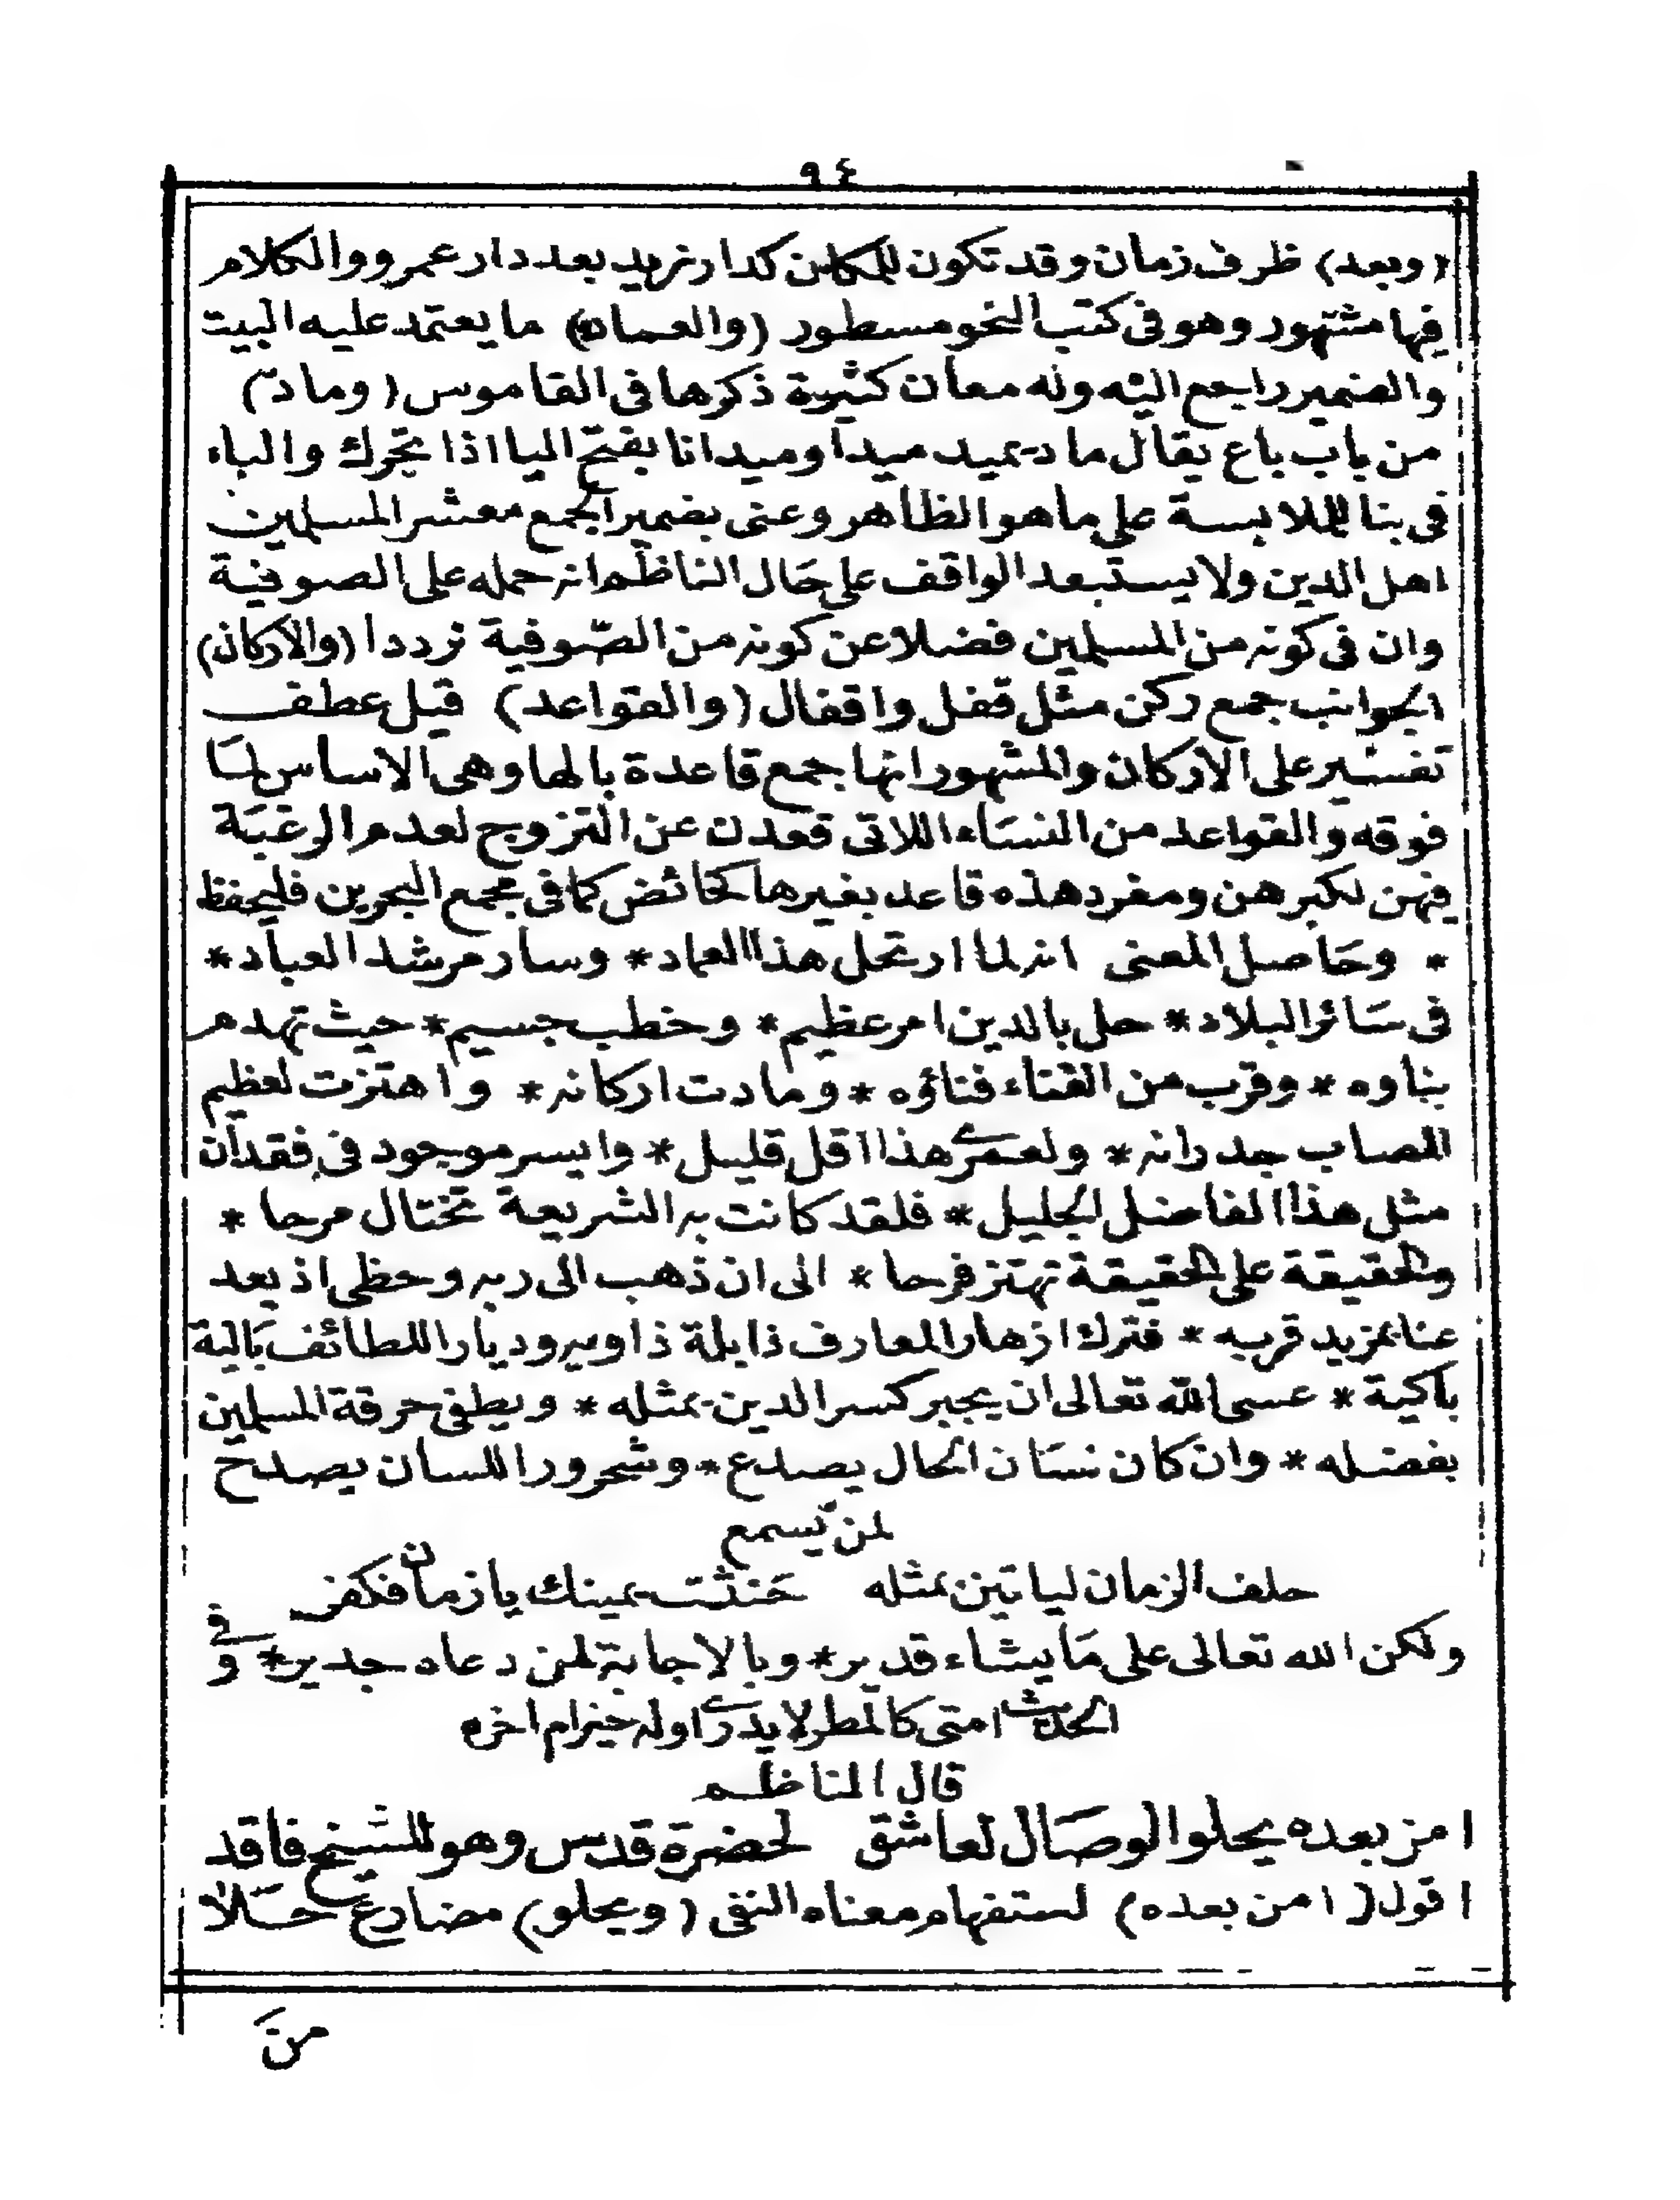 ٩٤
(وبعد) ظرف زمان وقد تكون للمكان كدار زيد بعد دار عمرو والكلام
فيها مشتهور وهو في كتب النحو مسطور (والعماد) ما يعتمد عليه البيت
والضمير راجع اليه وله معان كثيرة ذكرها في القاموس (وماد)
من باب باع يقال ماد يميد ميدا وميدانا بفتح اليا اذا تحرك والباء
في بنا للملابسة على ما هو الظاهر وعنى بضمير الجمع معشر المسلمين
اهل الدين ولا يستبعد الواقف على حَال الناظم انه حمله على الصوفية
وان في كونه من المسلمين فضلا عن كونه من الصّوفية ترددا (والاركان)
الجوانب جمع ركن مثل قفل واقفال (والقواعد) قيل عطف
تفسير على الاركان والمشهور انها جمع قاعدة بالها وهي الاساس لمَا
فوقه والقواعد من النسَاء اللاتى قعدن عن التزوج لعدم الرغبَة
فيهن لكبرهن ومفرد هذه قاعد بغيرها كحائض كما في مجمع البحرين فليحفظ
* وحَاصل المعنى انه لما ارتحل هذا العماد * وسار مرشد العباد *
في سَائر البلاد * حل بالدين امر عظيم * وخطب جسيم * حيث تهدم
بناوه * وقرب من الفناء فناؤه * ومادت اركانه * واهتزت لعظيم
المصاب جدرانه * ولعمرى هذا اقل قليل * وايسر موجود في فقدان
مثل هذا الفاضل الجليل * فلقد كانت به الشريعة تختال مرحا *
والحقيقة على الحقيقة تهتز فرحا * الى ان ذهب الى ربه وحظى اذ بعد
عنا بمزيد قربه * فترك ازهار المعارف ذابلة ذاويه وديار اللطائف بَالية
باكية * عسى الله تعالى ان يجبر كسر الدين بمثله * ويطفى حرقة المسلمين
بفضله * وان كان نسَان الحال يصدع * وشحرور اللسان يصدح
لمن يسمع
حلف الزمان لياتين بمثله حَنثت يمينك يا زمان فكفر
ولكن الله تعالى على مَا يشاء قدير * وبالاجابة لمن دعاه جدير * وفي
الحديث امتى كالمطر لا يدرى اوله خير ام اخره
قال الناظم
امن بعده يحلو الوصَال لعاشق لحضرة قدس وهو للشيخ فاقد
اقول (امن بعده) استفهام معناه النفى (ويحلو) مضارع حَلَا
من